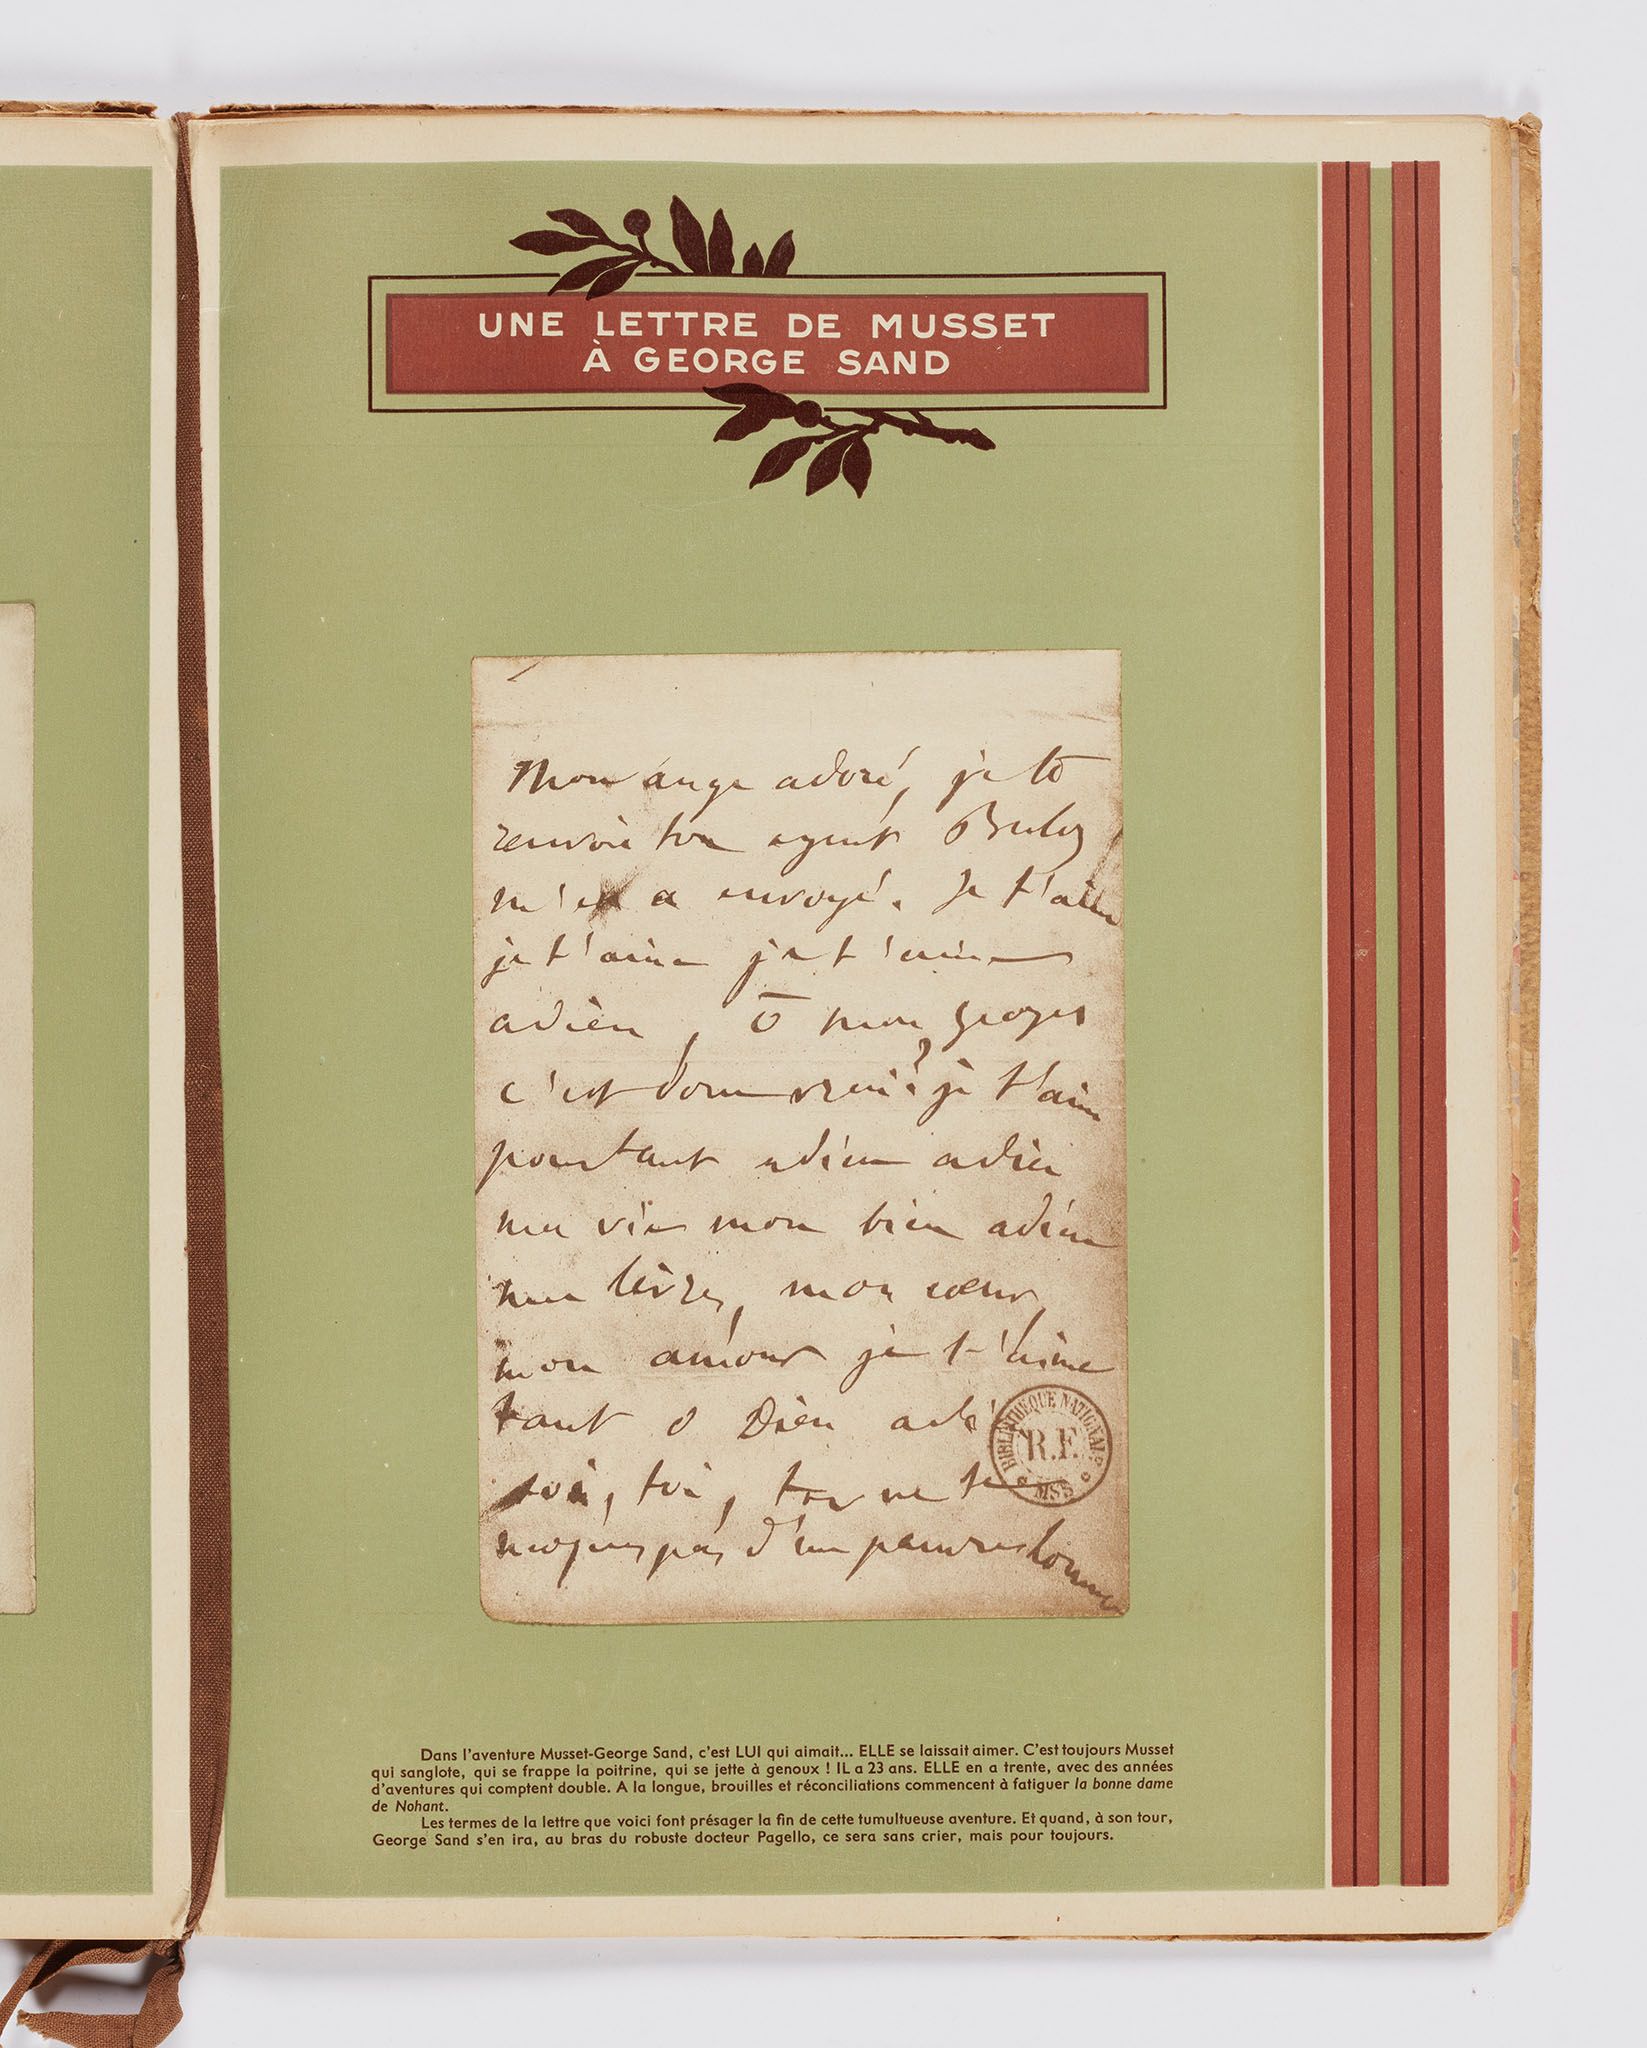 UNE LETTRE DE MUSSET
À GEORGE SAND
Mon ange adoré, je te
renvoie ton argent Buloz
m'en a envoyé. Je t'aime
je t'aime je t'aime
adieu, ô mon George
c'est donc vrai? je t'aime
pourtant adieu adieu
ma vie mon bien adieu
mes lèvres, mon cœur,
mon amour je t'aime
tant ô Dieu
toi, toi, toi ne te
moques pas d'un pauvre homme
BIBLIOTHÈQUE NATIONALE
R.F.
MSS
Dans l'aventure Musset-George Sand, c'est LUI qui aimait... ELLE se laissait aimer. C'est toujours Musset
qui sanglote, qui se frappe la poitrine, qui se jette à genoux ! IL a 23 ans. ELLE en a trente, avec des années
d'aventures qui comptent double. A la longue, brouilles et réconciliations commencent à fatiguer la bonne dame
de Nohant.
Les termes de la lettre que voici font présager la fin de cette tumultueuse aventure. Et quand, à son tour,
George Sand s'en ira, au bras du robuste docteur Pagello, ce sera sans crier, mais pour toujours.